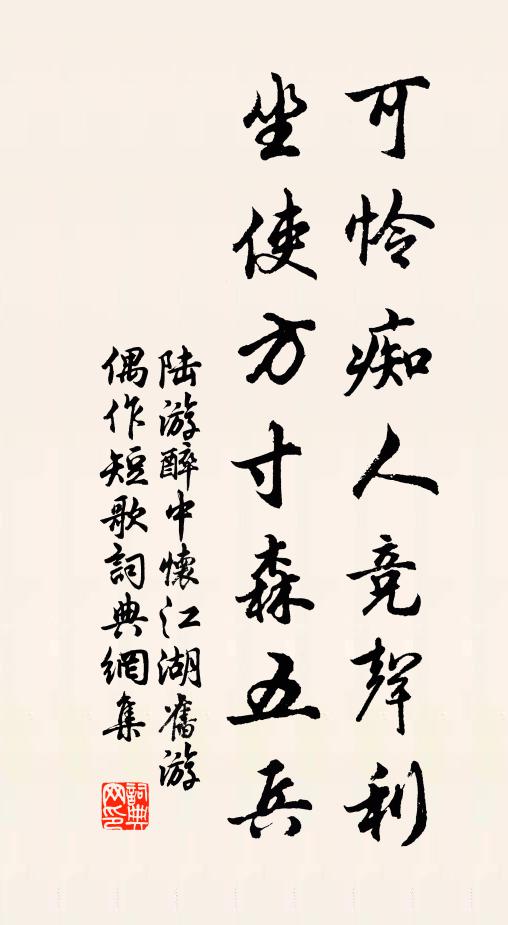 可怜痴人竞聲利
坐使方寸森五兵
陆游醉中懷江湖舊游
偶作短歌詞典網集
詞典
网印